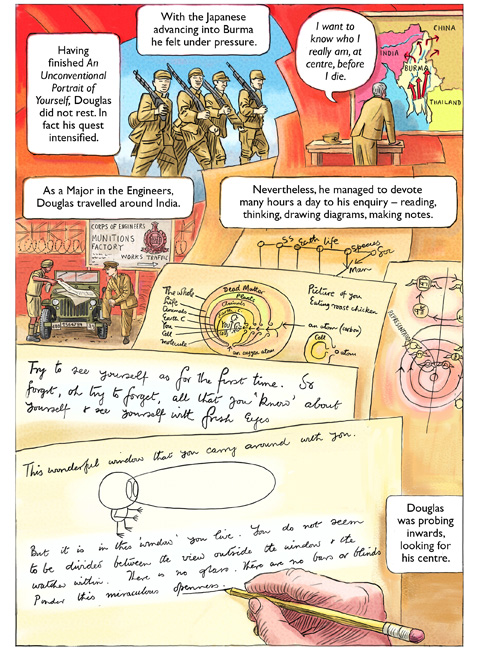 Having
finished An
Unconventional
Portrait of
Yourself, Douglas
did not rest. In
fact his quest
intensified.
With the Japanese
advancing into Burma
he felt under pressure.
I want to
know who I
really am, at
centre, before
I die.
CHINA
INDIA
BURMA
THAILAND
As a Major in the Engineers,
Douglas travelled around India.
Nevertheless, he managed to devote
many hours a day to his enquiry – reading,
thinking, drawing diagrams, making notes.
CORPS OF ENGINEERS
MUNITIONS
FACTORY
WORKS TRAFFIC
SS Earth life
species
you
Man
The Whole
Life
Animals
Earth C
You
Cell
molecule
Dead Matter
Plants
Animals
Earth C
an oxygen atom
Picture of you
Eating roast chicken
an atom (carbon)
Cell
atoms
Try to see yourself as for the first time. So
forget, oh try to forget, all that you 'know' about
yourself & see yourself with fresh eyes
This wonderful window that you carry around with you.
But it is in this window you live. You do not seem
to be divided between the view outside the window & the
watcher within. There is no glass. There are no bars or blinds
Ponder this miraculous openness.
Douglas
was probing
inwards,
looking for
his centre.